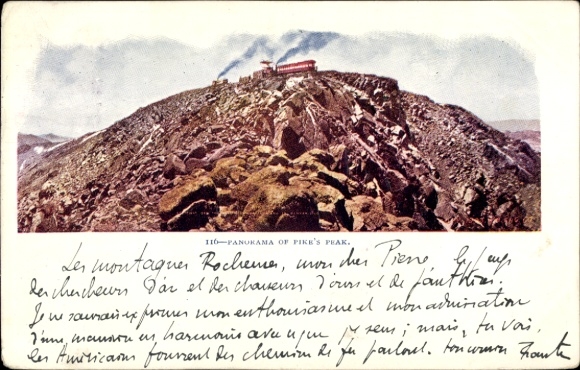 116—PANORAMA OF PIKE'S PEAK.
Les montagnes Rocheuses, mon cher Pierre. Le pays
des chercheurs d'or et des chasseurs d'ours et de panthères.
Je ne saurais exprimer mon enthousiasme et mon admiration
d'une manière en harmonie avec ce que je sens; mais, tu vois,
les Américains fourrent des chemins de fer partout. ton cousin